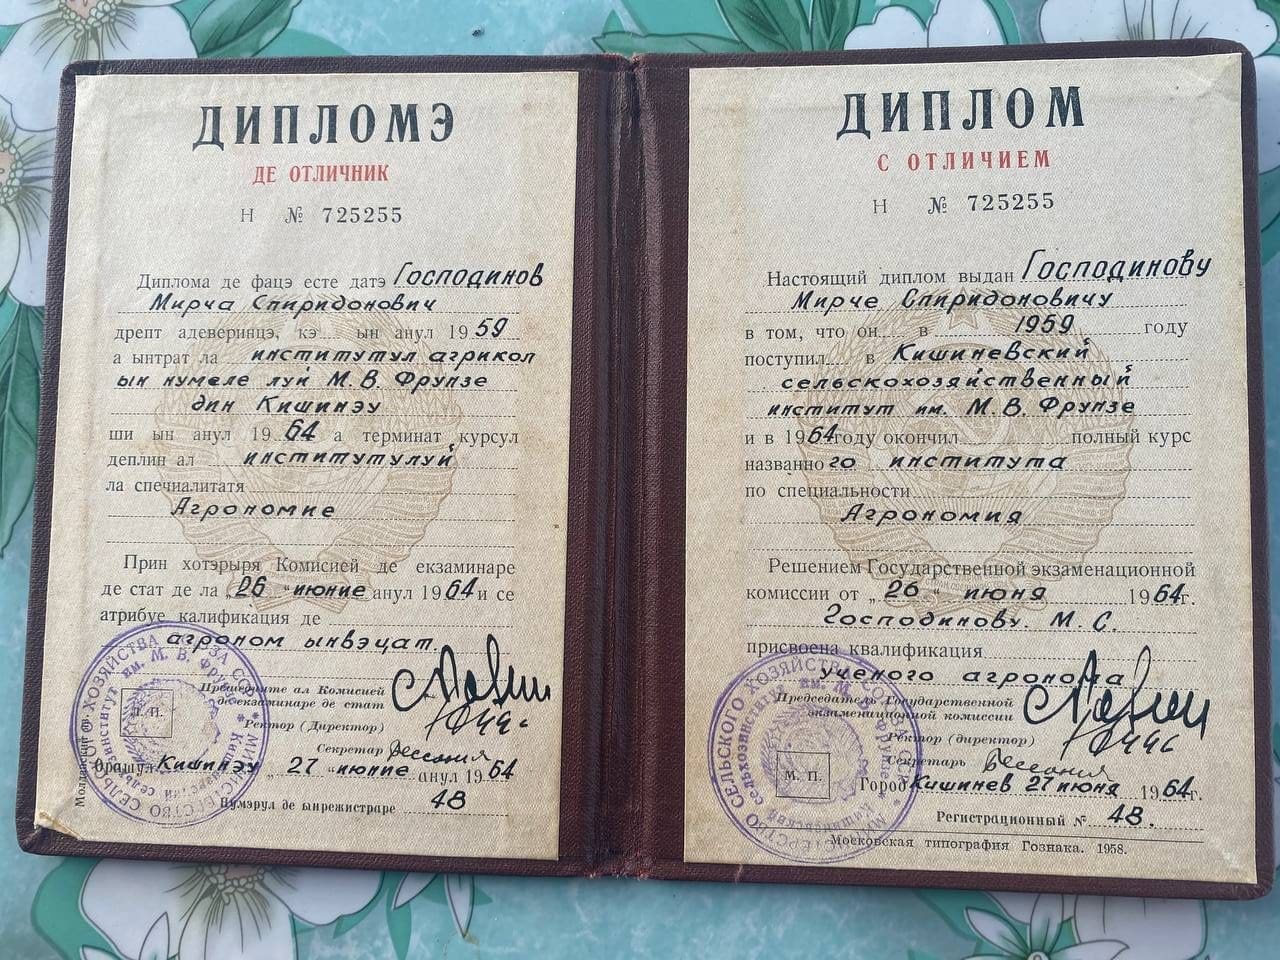 ДИПЛОМЭ
ДЕ ОТЛИЧНИК
Н № 725255
Диплома де фацэ есте датэ Господинов
Мирча Спиридонович
дрепт адеверинцэ, кэ ын анул 1959
а ынтрат ла институтул агрикол
ын нумеле луй М. В. Фрунзе
дин Кишинэу
ши ын анул 1964 а терминат курсул
деплин ал институтулуй
ла спечиалитатя
Агрономие
Прин хотэрыря Комисией де екзаминаре
де стат де ла „26 “ июние анул 1964 и се
атрибуе калификация де
агроном ынвэцат.
Прешединте ал Комисией
де екзаминаре де стат
Ректор (Директор)
Секретар
Орашул Кишинэу „ 27 “ июние анул 1964
Нумэрул де ынрежистраре 48
М. П.
ДИПЛОМ
С ОТЛИЧИЕМ
Н № 725255
Настоящий диплом выдан Господинову
Мирче Спиридоновичу
в том, что он в 1959 году
поступил в Кишиневский
сельскохозяйственный
институт им. М. В. Фрунзе
и в 1964 году окончил полный курс
названного института
по специальности
Агрономия
Решением Государственной экзаменационной
комиссии от „ 26 “ июня 1964 г.
Господинову. М. С.
присвоена квалификация
ученого агронома
Председатель Государственной
экзаменационной комиссии
Ректор (директор)
Секретарь
М. П.
Город Кишинев 27 июня 1964 г.
Регистрационный № 48.
Московская типография Гознака. 1958.